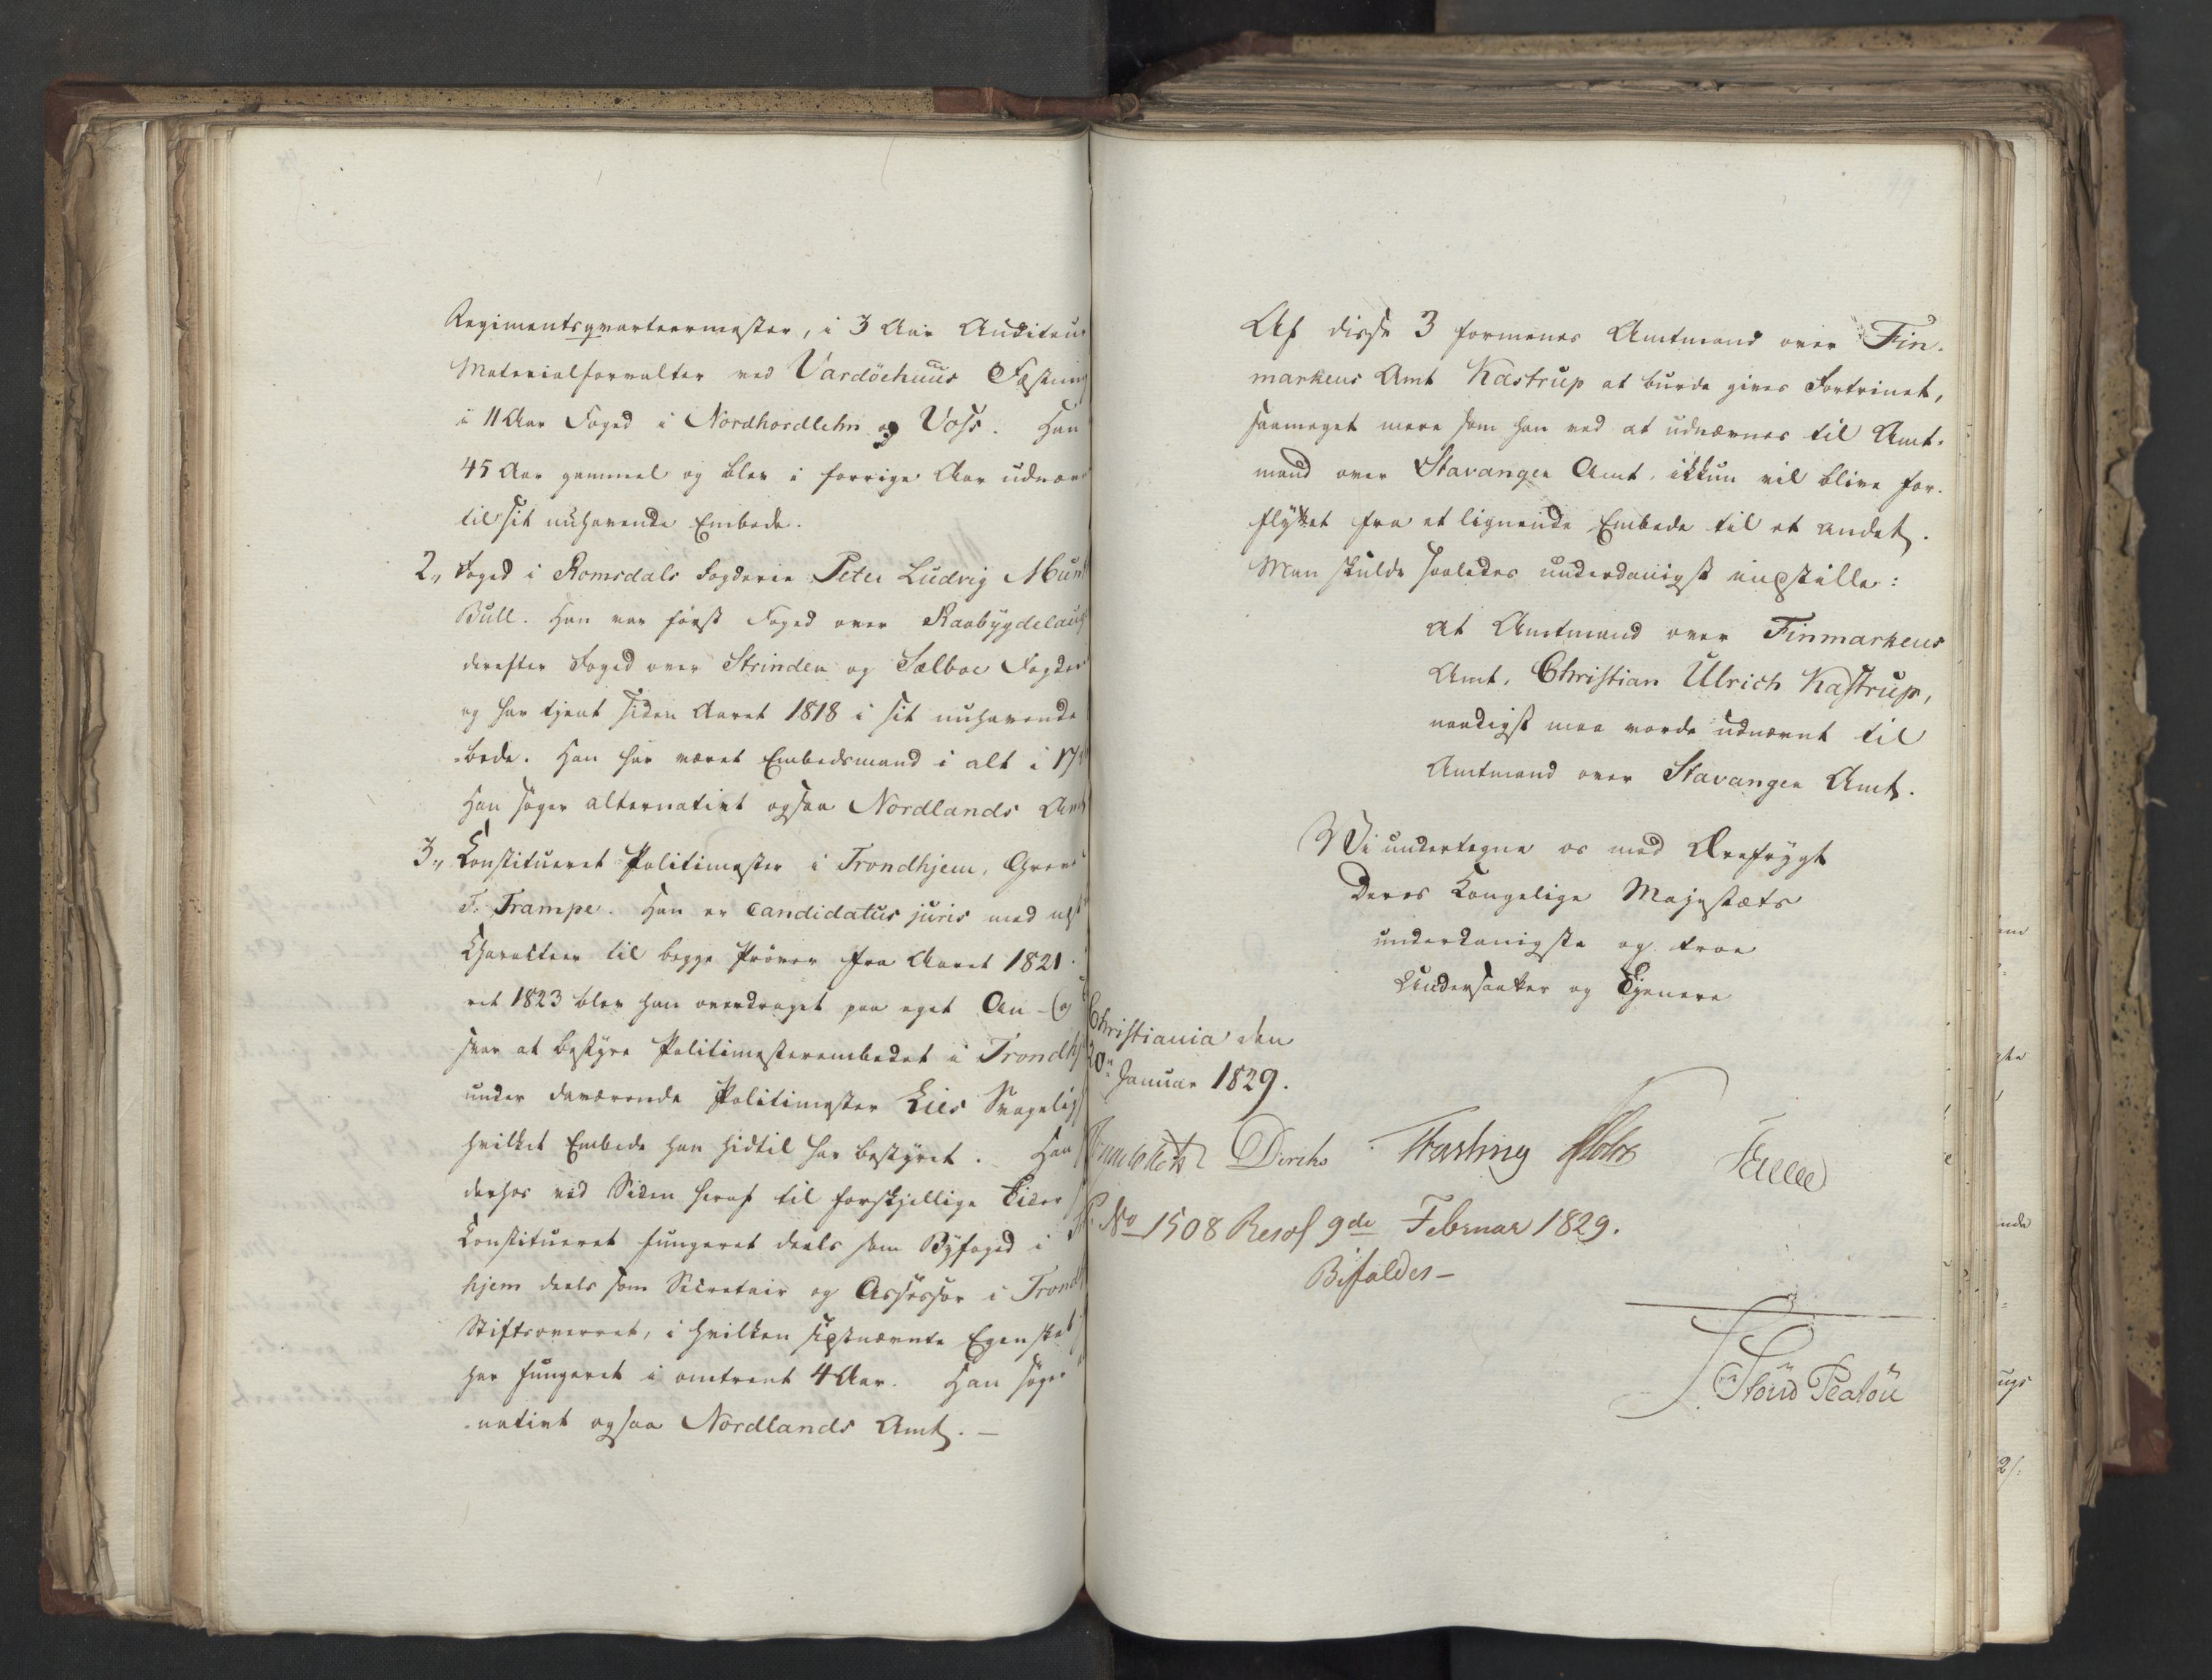 Regimentsqvarteermester, i 3 Aar Auditeur
Materialforvalter ved Vardöehuus Fæstning
i 11 Aar Foged i Nordhordlehn og Voss. Han
45 Aar gammel og blev i forrige Aar udnævn
til sit nuhavende Embede.
2., Foged i Romsdals Fogderie Peter Ludvig Munt
Bull. Han var først Foged over Raabygdelaug
derefter Foged over Strinden og Sælboe Fogder
og har tjent siden Aaret 1818 i sit nuhavende
-bede. Han har været Embedsmand i alt i 17
Han søger alternativt ogsaa Nordlands Amt
3., Constitueret Politimester i Trondhjem, Greve
F. Trampe. Han er Candidatus juris med
Charakteer til begge Prøver fra Aaret 1821.
ret 1823 blev han overdraget paa eget An- og
svar at bestyre Politimesterembedet i Trondhj
under daværende Politimester Lies Svagelig
hvilket Embede han hidtil har bestyret. Han
derhos ved Siden heraf til forskjellige Tider
Constitueret fungeret deels som Byfoged i
hjem deels som Secretair og Assessor i Trondh
Stiftsoverret, i hvilken sidstnævnte Egenskab
har fungeret i omtrent 4 Aar. Han søger
-nativt ogsaa Nordlands Amt. —
Af disse 3 formenes Amtmand over Fin-
markens Amt Kastrup at burde gives Fortrinet,
saameget mere som han ved at udnævnes til Amt-
mand over Stavanger Amt, ikkun vil blive for-
flyttet fra et lignende Embede til et andet.
Man skulde saaledes underdanigst indstille:
at Amtmand over Finmarkens
Amt, Christian Ulrich Kastrup,
naadigst maa vorde udnævnt til
Amtmand over Stavanger Amt.
Vi undertegne os med Ærefrygt
Deres Kongelige Majestæts
underdanigste og troe
Undersaatter og Tjenere
Christiania den
20de Januar 1829.
Collett Diriks Fasting Holst
No 1508 Resol 9de Februar 1829.
Bifaldes —